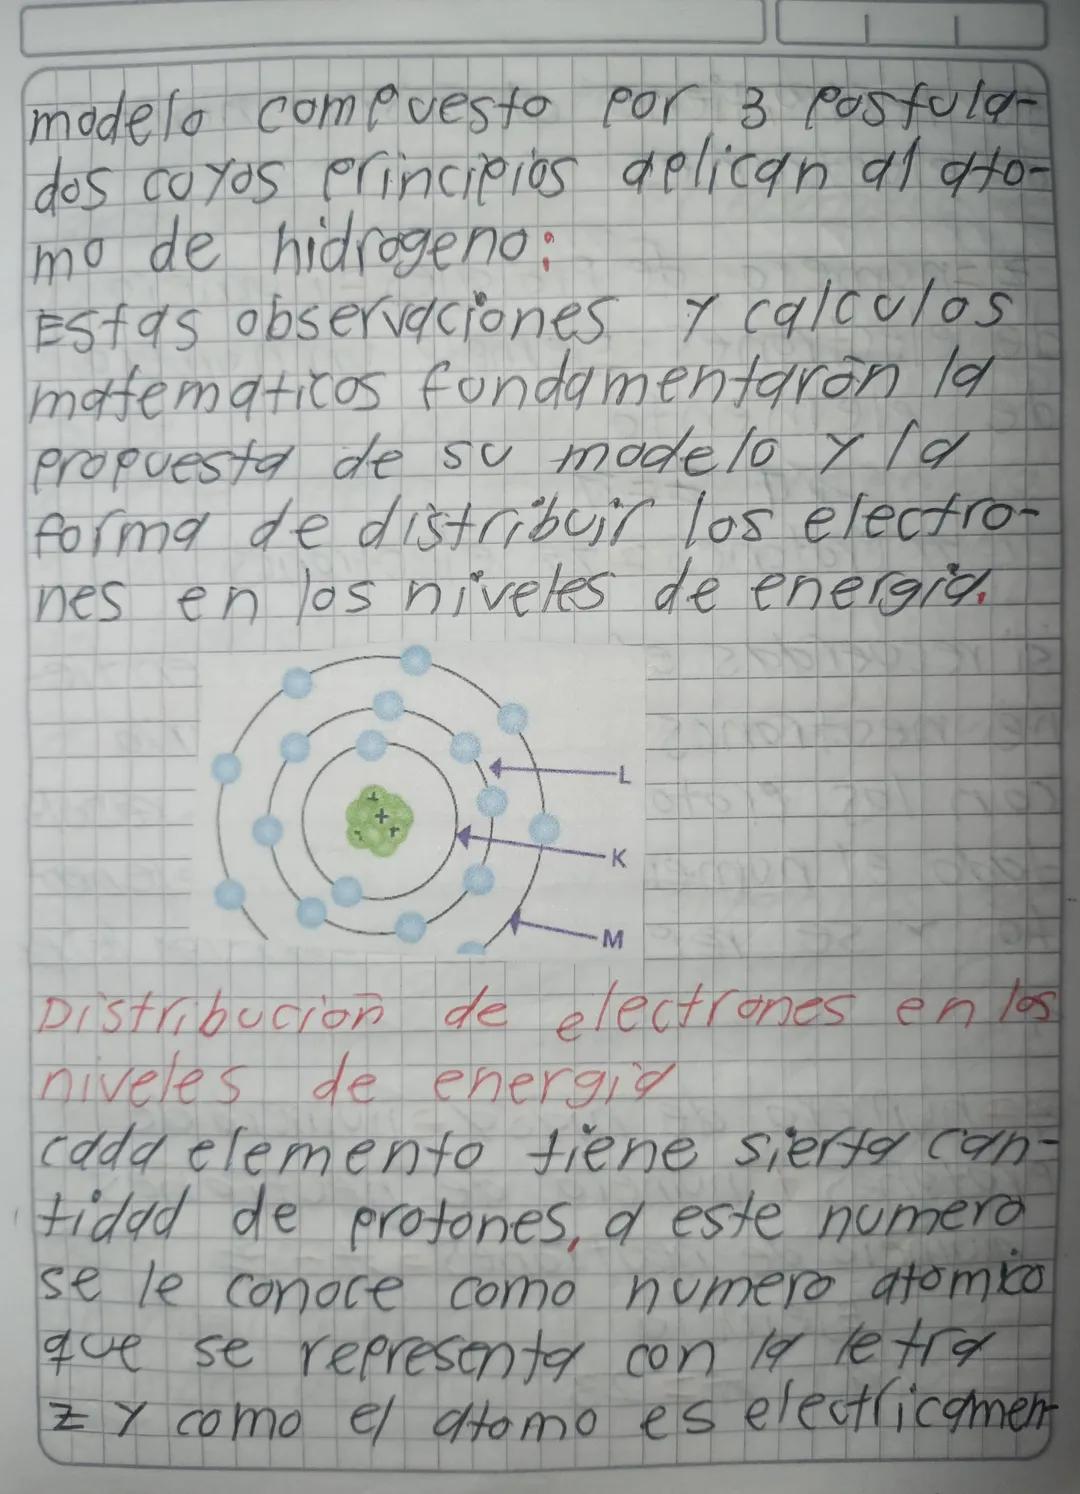 modelo compuesto por 3 postula-
dos cuyos principios aplican al áto-
mo de hidrogeno:
Estas observaciones y calculos
matematicos fundamentarón la
propuesta de su modelo y la
forma de distribuir los electro-
nes en los niveles de energia.
L
K
M
Distribución de electrones en los
niveles de energia
cada elemento tiene sierta can-
tidad de protones, a este numero
se le conoce como numero atomico
que se representa con la letra
z y como el atomo es electricamen-